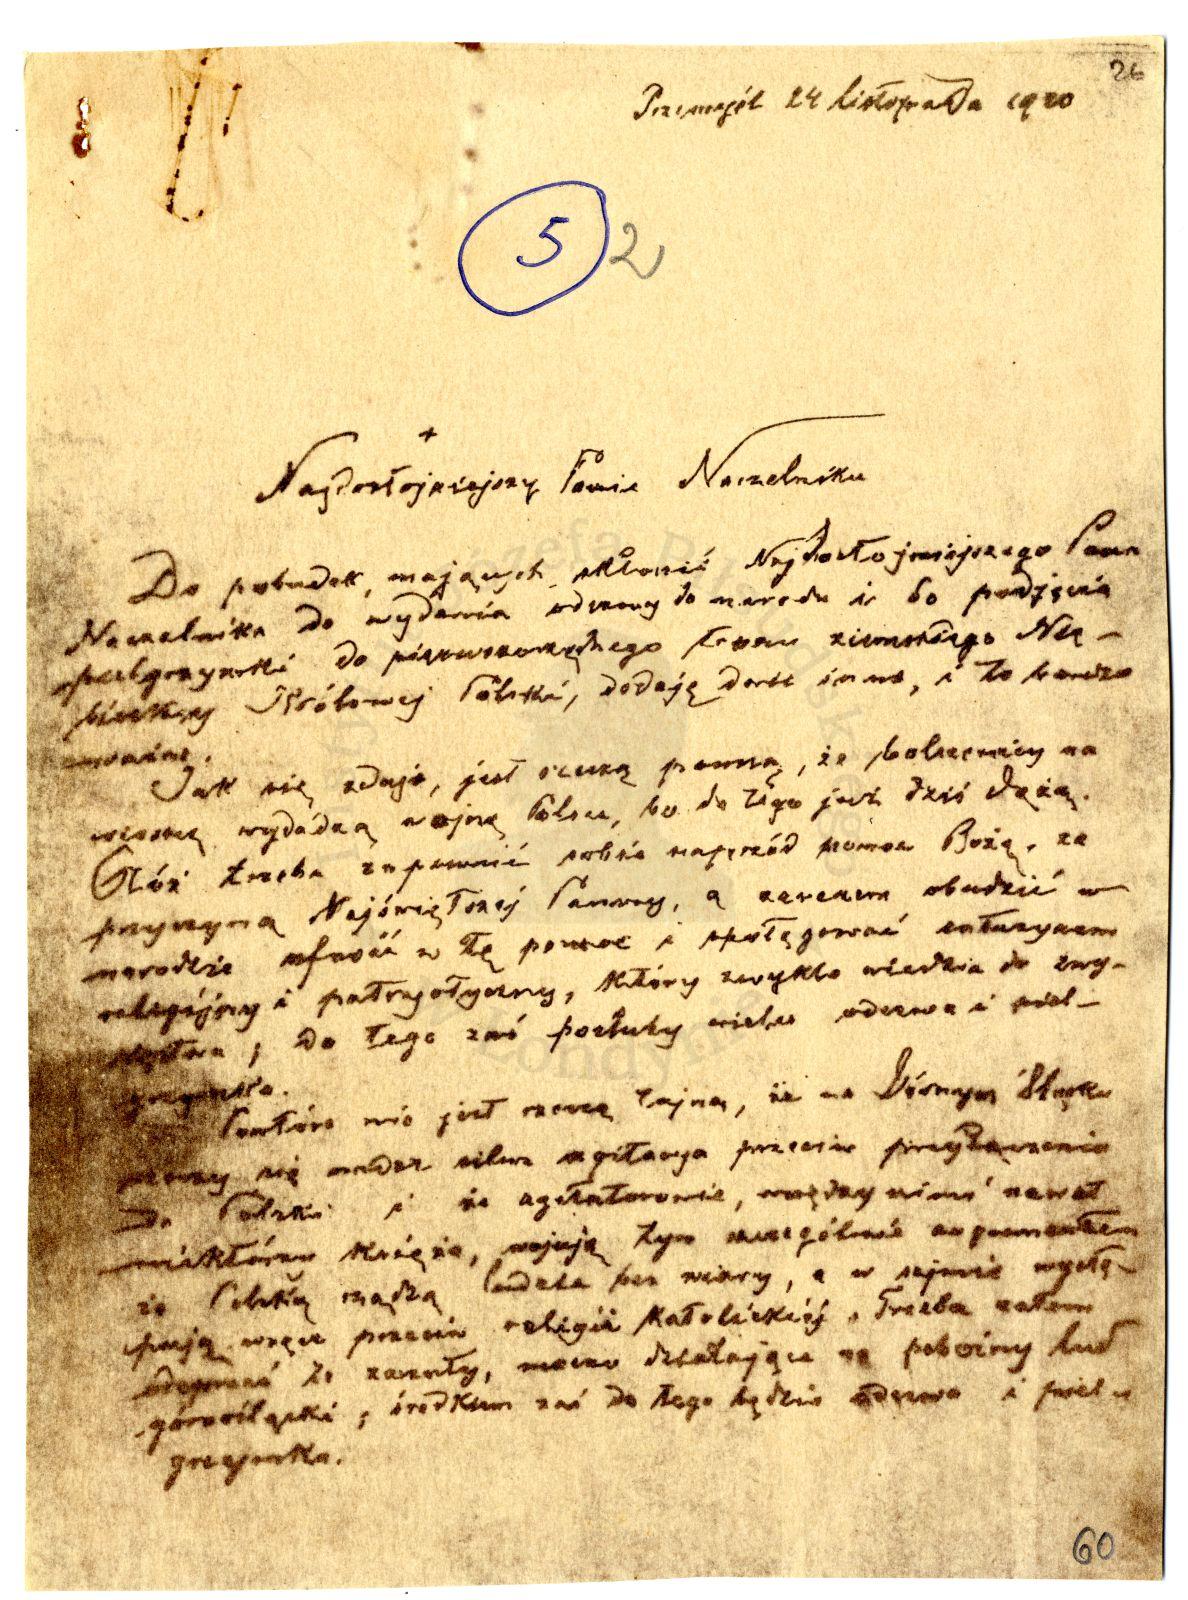 26
Przemyśl 24 listopada 1920
5
2
+
Najdostojniejszy Panie Naczelniku
Do pobudek, mających skłonić Najdostojniejszego Pana
Naczelnika do wydania odezwy do narodu i do podjęcia
pielgrzymki do pierwszorzędnego tronu ziemskiego Nie-
bieskiej Królowej Polski, dodaję dwie inne, i to bardzo
ważne.
Jak się zdaje, jest rzeczą pewną, że bolszewicy na
wiosnę wydadzą wojnę Polsce, bo do tego już dziś dążą.
Otóż trzeba zapewnić sobie naprzód pomoc Bożą, za
przyczyną Najświętszej Panny, a zarazem obudzić w
narodzie ufność w tę pomoc i spotęgować entuzyazm
religijny i patryotyczny, który zwykle wiedzie do zwy-
cięstwa; do tego zaś posłuży wielce odezwa i piel-
grzymka.
Powtóre nie jest rzeczą tajną, że na Górnym Śląsku
szerzy się nader silna agitacya przeciw przyłączeniu
do Polski i że agitatorowie, między nimi nawet
niektórzy księża, wojują tym szczególnie argumentem
że Polską rządzą ludzie bez wiary, a w sejmie wystę-
pują wręcz przeciw religii katolickiej. Trzeba zatem
odeprzeć te zarzuty, mocno działające na pobożny lud
górnośląski; środkiem zaś do tego będzie odezwa i piel-
grzymka.
60